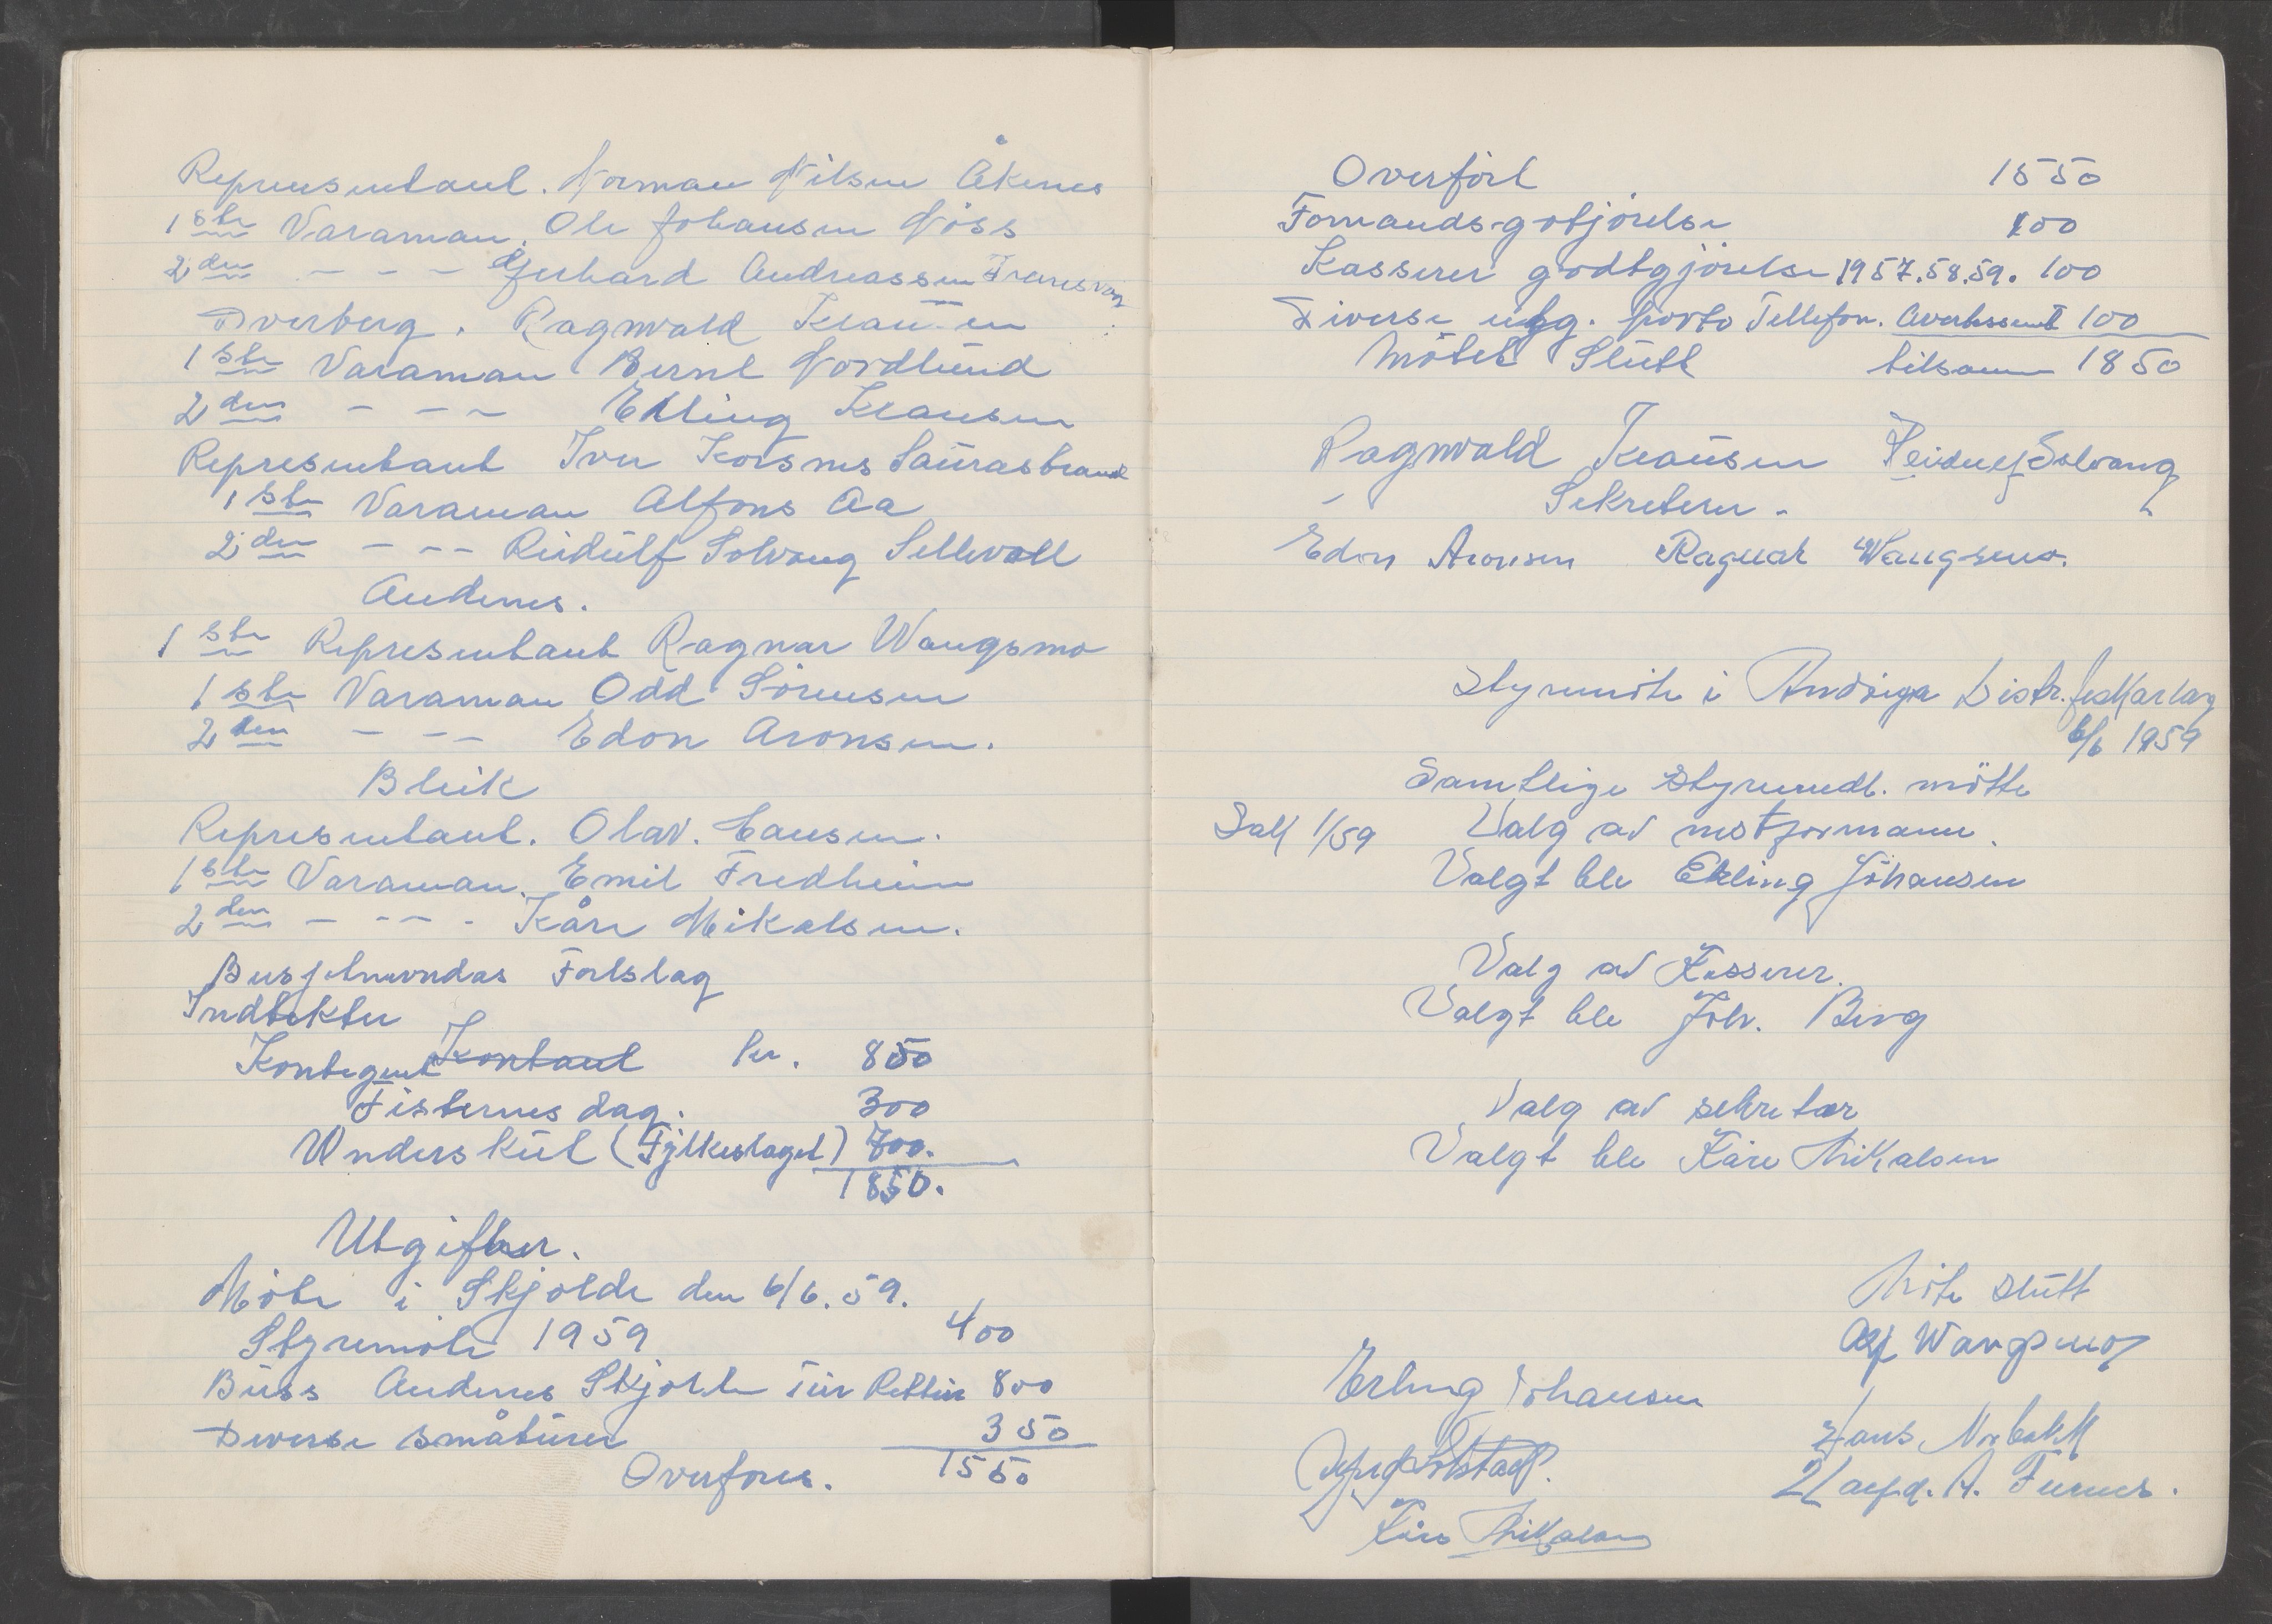 Representant. Norman Nilsen Åknes
1ste Varaman. Ole Johansen Nöss
2den - - - Gerhard Andreassen
Dverberg. Ragnvald Klausen
1ste Varaman Bernt Nordlund
2den - - - Erling Klausen
Representant Iver Korsnes Saurasbrand
1ste Varaman Alfons Aa
2den - - - Reidulf Solvang Sellevoll
Andenes.
1ste Representant Ragnar Wangsmo
1ste Varaman Odd Sörensen
2den - - - Edon Aronsen.
Bleik
Representant. Olav. Hansen.
1ste Varaman. Emil Fredheim
2den - - - - Kåre Mikalsen.
Busjetnevndas Forlslag
Indtekter
Kontegent Kontant kr. 850
Fiskernes dag. 300
Underskut (Fylkeslaget) 700.
1850.
Utgifter.
Möte i Skjolde den 6/6. 59.
Styremöte 1959 400
Buss Andenes Skjolde tur Rettur 800
Diverse småturer 350
Overfores. 1550
Overfört 1550
Formands-gotjörelse 100
Kasserer godtgjörelse 1957.58.59. 100
Diverse utg. porto Tellefon. Avertissent 100
Mötet Slutt tilsamen 1850
Ragnvald Klausen Reidulf Solvang
Sekreterer -
Edon Aronsen Ragnar Wangsmo.
Styremöte i Andöya Distr. fiskarlag
6/6 1959
Samtlige styremedl. mötte
Sak 1/59 Valg av nestformann.
Valgt ble Erling Johansen
Valg av Kasserer.
Valgt ble Joh. Berg
Valg av sekretær
Valgt ble Kåre Mikalsen
Möte slutt
Alf Wangsmo
Erling Johansen
Hans Norbakk
Hagb. A. Furnes.
Kåre Mikalsen